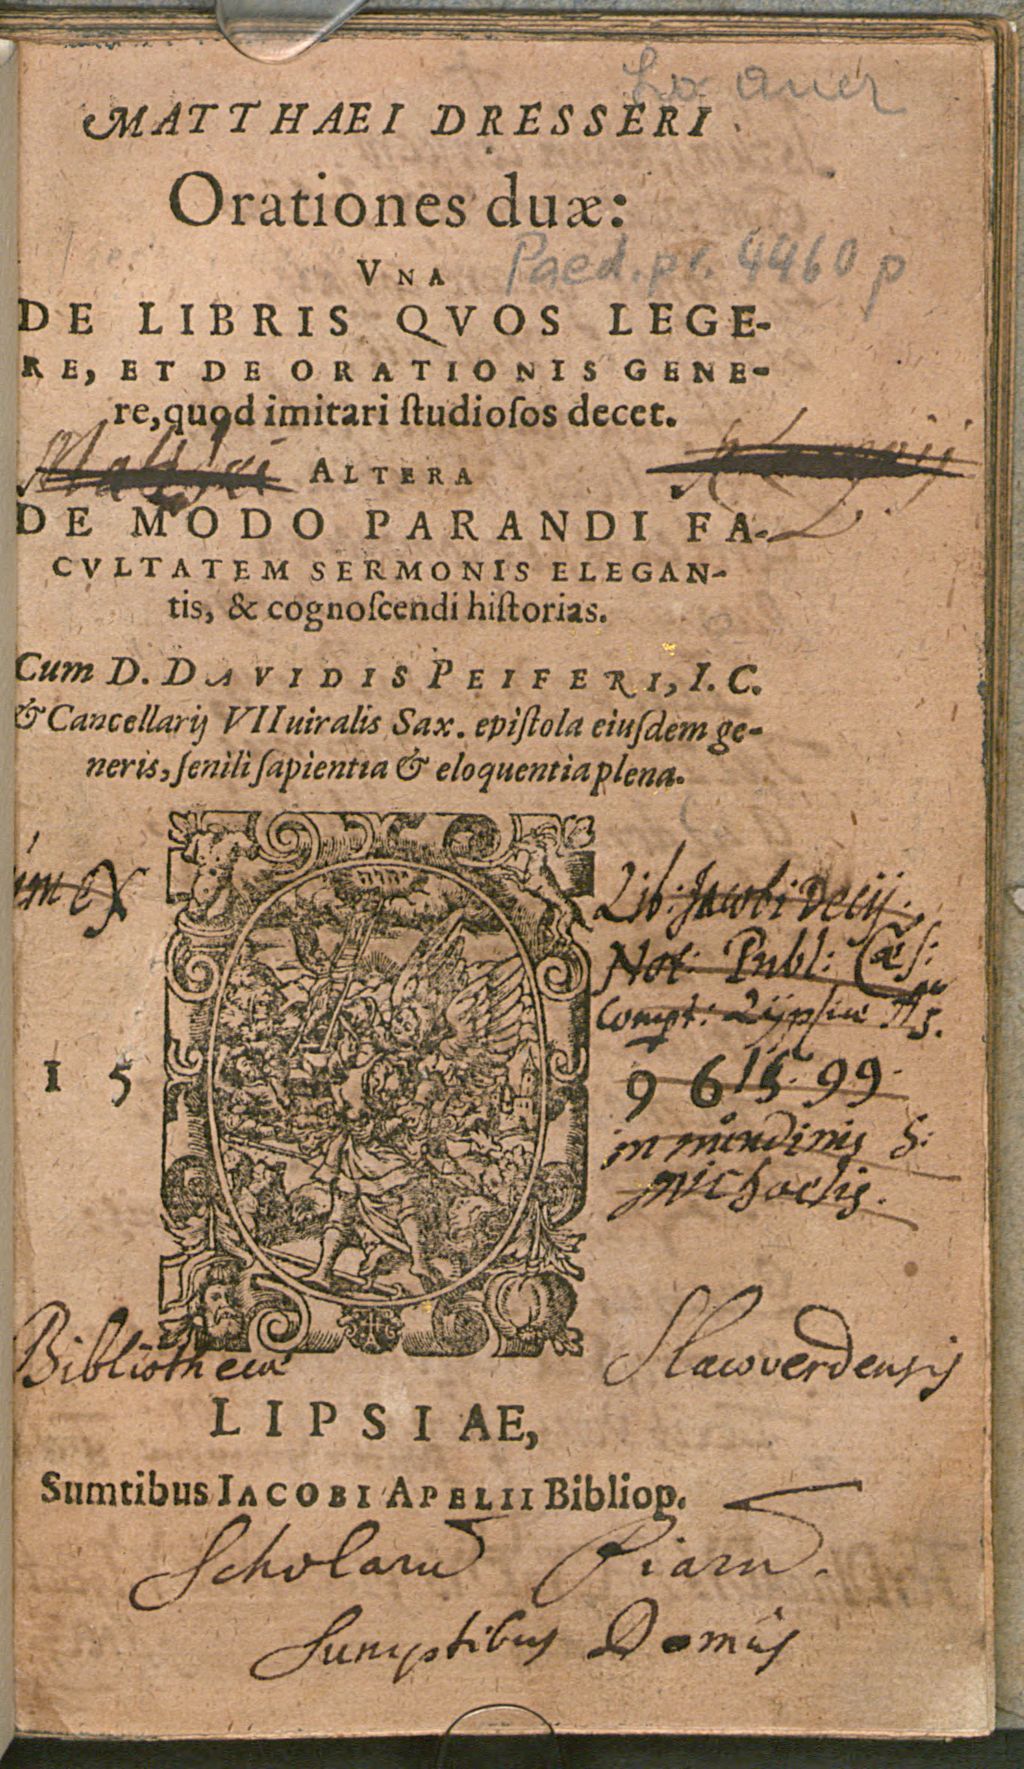 Lo auer
MATTHAEI DRESSERI
Orationes duæ:
VNA
Paed. pr. 4460 p
DE LIBRIS QVOS LEGE-
RE, ET DE ORATIONIS GENE-
re, quod imitari ſtudioſos decet.
Matthæi
ALTERA
DE MODO PARANDI FA-
CVLTATEM SERMONIS ELEGAN-
tis, & cognoſcendi hiſtorias.
Cum D. DAVIDIS PEIFERI, I. C.
& Cancellarij VIIuiralis Sax. epiſtola eiuſdem ge-
neris, ſenili ſapientia & eloquentia plena.
יהוה
Lib: Jacobi Decij
Not: Publ: Cæs:
compt: Lijpsiæ
15 96 15 99
in nundinis S:
Michaelis.
Bibliothecæ Slacoverdensis
LIPSIAE,
Sumtibus IACOBI APELII Bibliop.
Scholarū Piarū.
Sumptibus Domûs